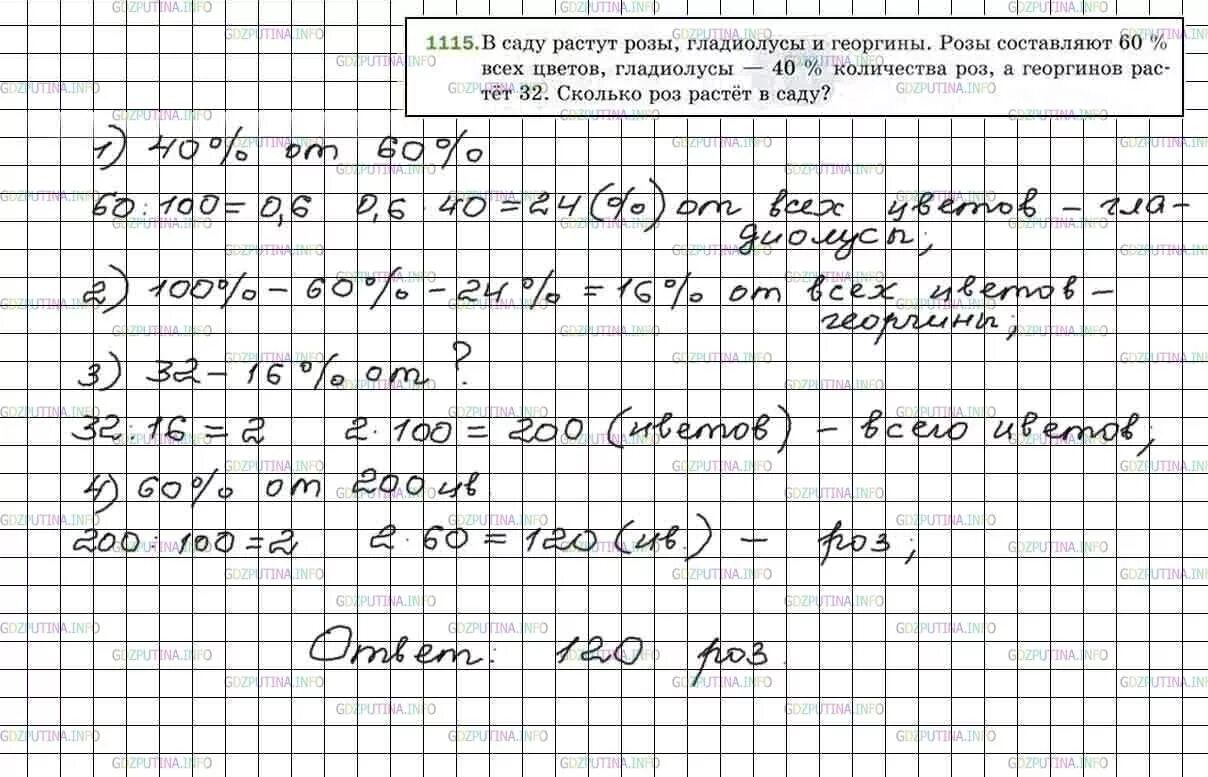 1115. В саду растут розы, гладиолусы и георгины. Розы составляют 60 %
всех цветов, гладиолусы — 40 % количества роз, а георгинов рас-
тёт 32. Сколько роз растёт в саду?
1) 40% от 60%
60:100=0,6 0,6·40=24(%) от всех цветов – гла-
диолусы;
2) 100% – 60% – 24% = 16% от всех цветов –
георгины;
3) 32 – 16% от ?
32:16=2 2·100=200 (цветов) – всего цветов;
4) 60% от 200 цв
200:100=2 2·60=120 (цв.) – роз;
Ответ: 120 роз.
GDZPUTINA.INFO